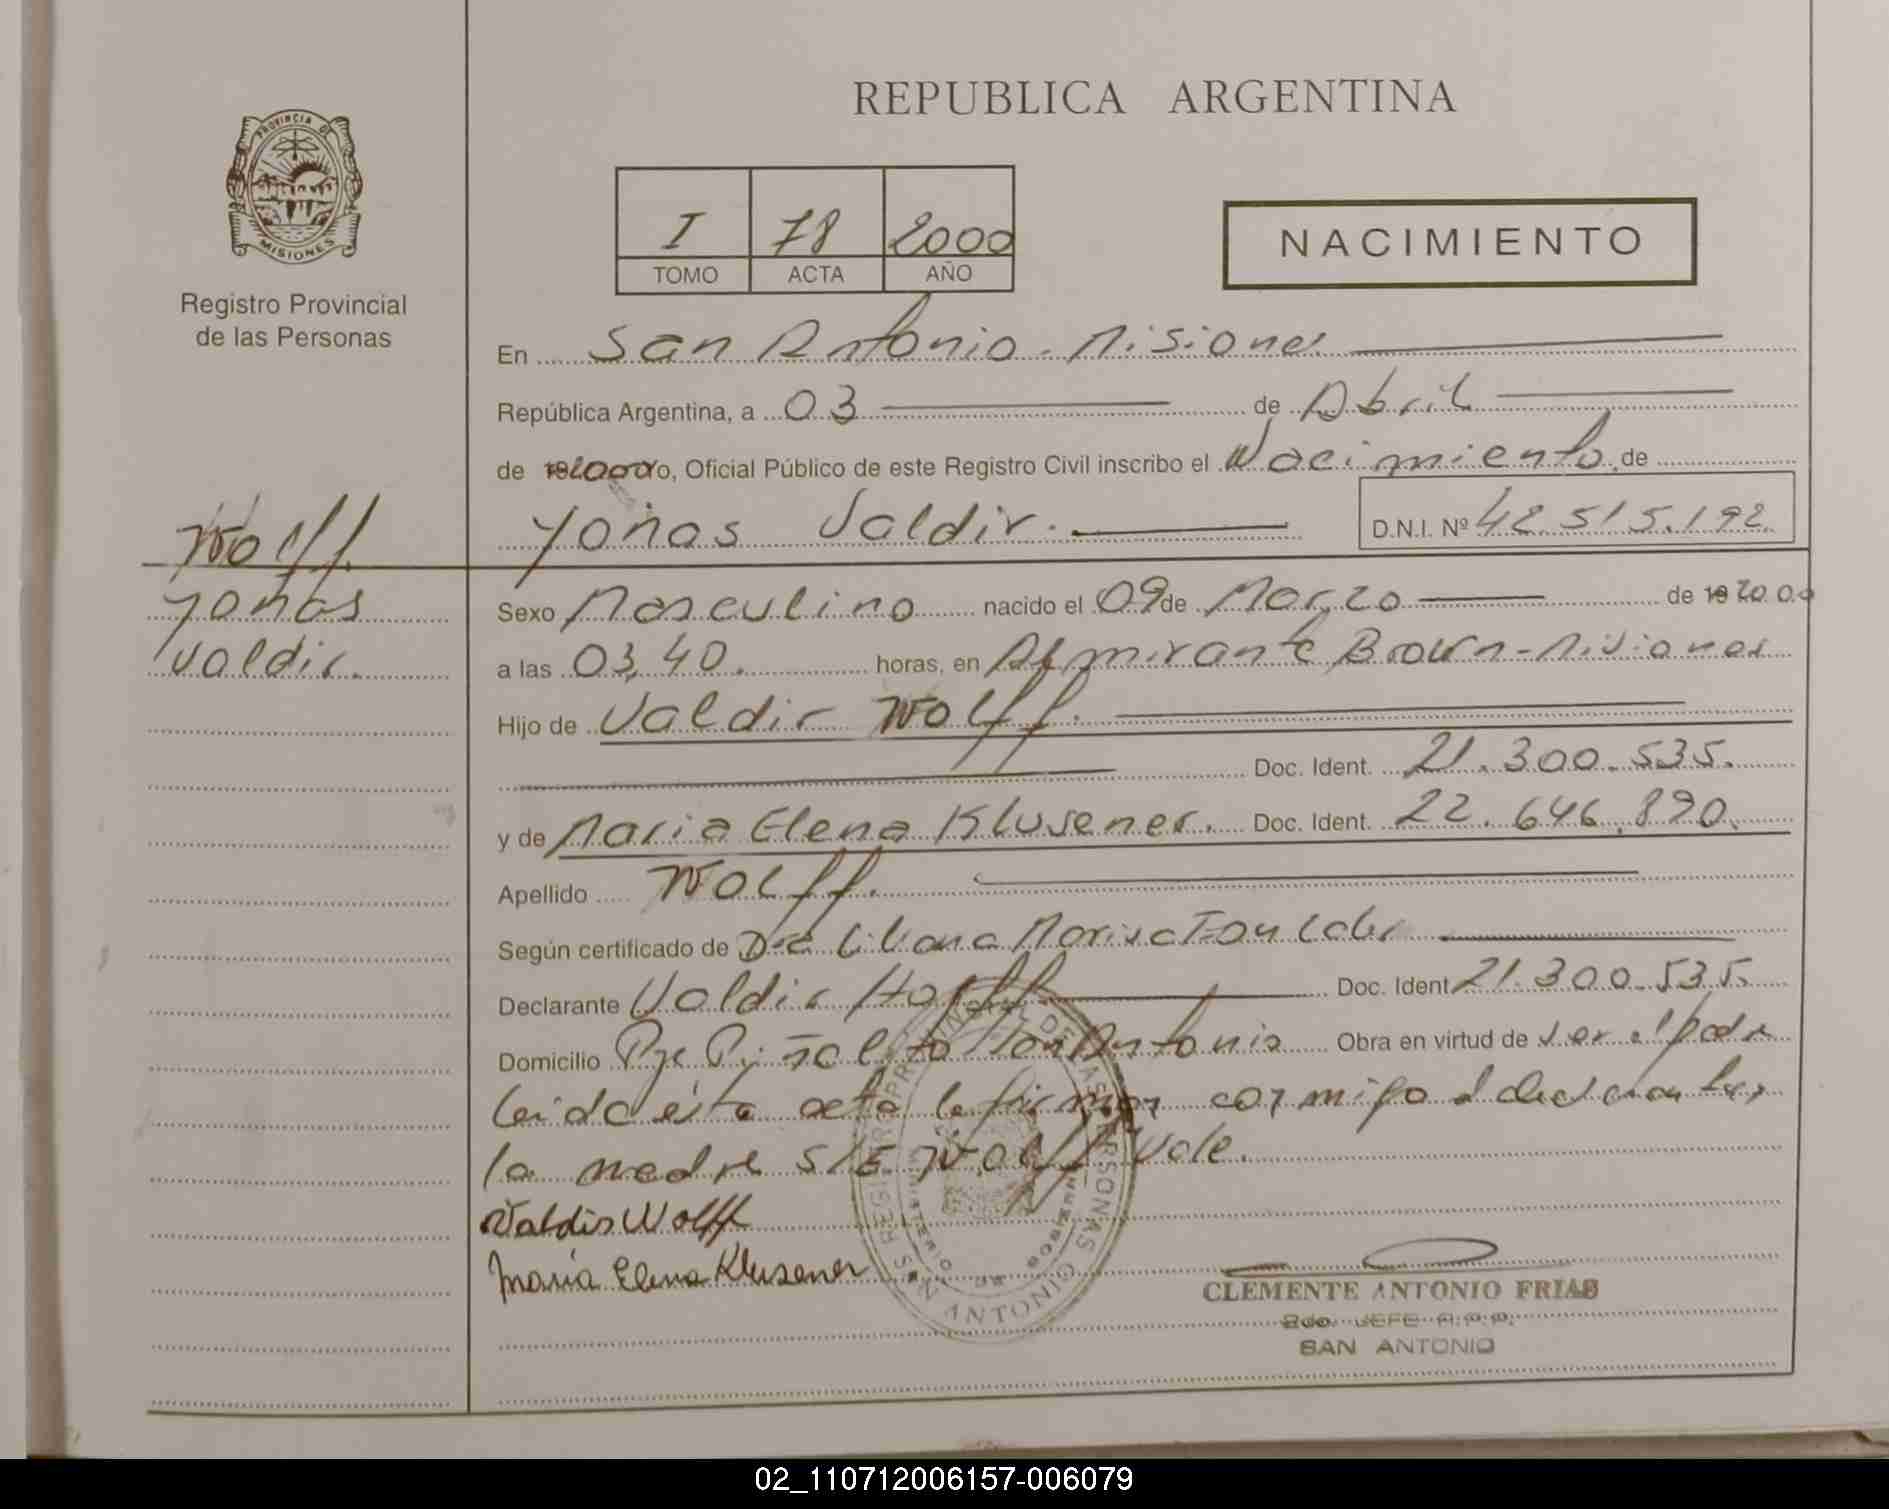 REPUBLICA ARGENTINA
PROVINCIA DE
MISIONES
Registro Provincial
de las Personas
I 78 2000
TOMO ACTA AÑO
NACIMIENTO
En San Antonio - Misiones
República Argentina, a 03 de Abril
de 2000 yo, Oficial Público de este Registro Civil inscribo el Nacimiento de
Yoñas Valdir. D.N.I. Nº 42.515.192.
Wolff.
Yoñas
Valdir.
Sexo Masculino nacido el 09 de Marzo de 19 2000
a las 03,40. horas, en Almirante Brown - Misiones
Hijo de Valdir Wolff.
Doc. Ident. 21.300.535.
y de Maria Elena Klusener. Doc. Ident. 22.646.890.
Apellido Wolff.
Según certificado de Dra Liliana Marisa
Declarante Valdir Doc. Ident 21.300.535.
Domicilio Pje Piñalito San Antonio Obra en virtud de ser el padre
leida esta acta la firman conmigo el declarante y
la madre S/E Wolff Vale.
Valdir Wolff
María Elena Klusener
REGISTRO PROVINCIAL DE LAS PERSONAS
MINISTERIO DE GOBIERNO
SAN ANTONIO
CLEMENTE ANTONIO FRIAS
2do. JEFE R.P.P.
SAN ANTONIO
02_110712006157-006079